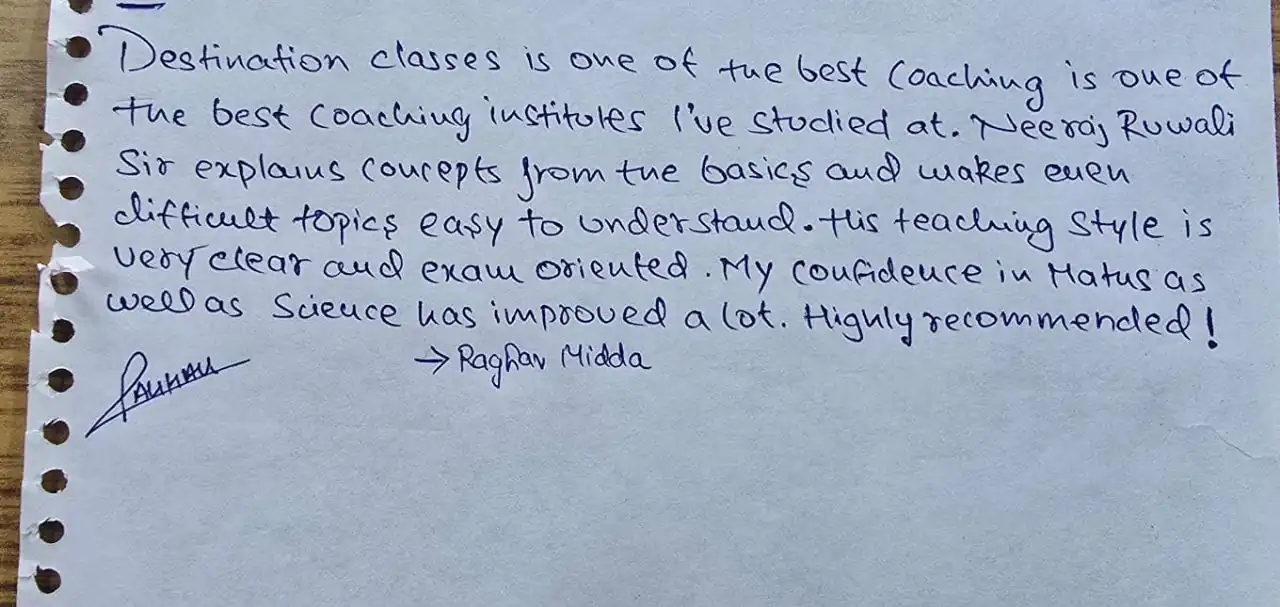 Destination classes is one of the best Coaching is one of
the best coaching institutes I've studied at. Neeraj Ruwali
Sir explains concepts from the basics and makes even
difficult topics easy to understand. His teaching style is
very clear and exam oriented. My confidence in Maths as
well as Science has improved a lot. Highly recommended!
→ Raghav Midda